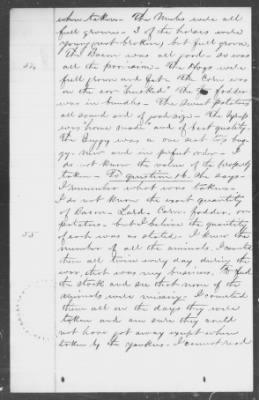 when taken. The Mules were all
full grown - 3 of the horses were
young (not broken) but full grown.
The Bacon was all good - so was
54 all the provision - The Hogs were
full grown and fat - The Corn was
on the cob husked The fodder
was in bundles - The sweet potatoes
all sound and of good size - The syrup
was "home made" and of best quality.
The Buggy was a one seat no top
gy. new and in perfect order - I
do not know the value of the property
taken - To question 16. He says -
I remember what was taken -
I do not know the exact quantity
of Bacon - Lard - Corn, fodder, or
potatoes - but I believe the quantity
55 of each was as stated - I know the
number of all the animals. I counted
them all twice every day during the
war, that was my business, to feed
the stock and see that none of the
animals were missing. I counted
them all on the days they were
taken and am sure they could
not have got away except when
taken by the Yankees - I cannot read